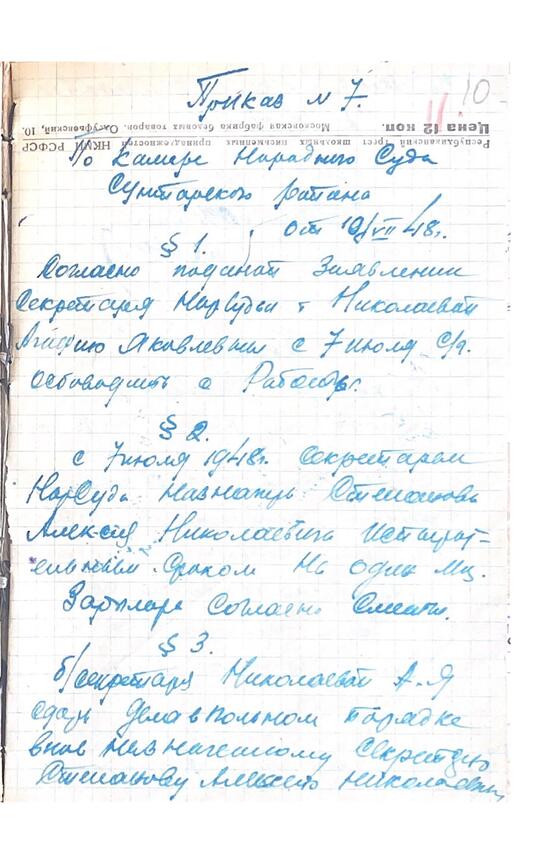 10
11
Приказ № 7.
Цена 12 коп.
Московская фабрика беловых товаров. Олсуфьевский, 10.
Республиканский трест школьных письменных принадлежностей НКМП РСФСР
По Камере Народного Суда
Сунтарского района
от 10/VII 48г.
§ 1.
Согласно поданой Заявлении
Секретаря НарСуда т Николаевой
Агафию Яковлевны с 7 июля с/г.
освободить с Работы.
§ 2.
с 7 июля 1948г. Секретарем
НарСуда назначить Степанова
Алексея Николаевича Испыта-
тельным Сроком на один м-ц.
Зарплата согласно Сметы.
§ 3.
б/секретаря Николаевой А.Я
сдать дела в полном порядке
вновь назначеному Секретарю
Степанову Алексею Николаевич